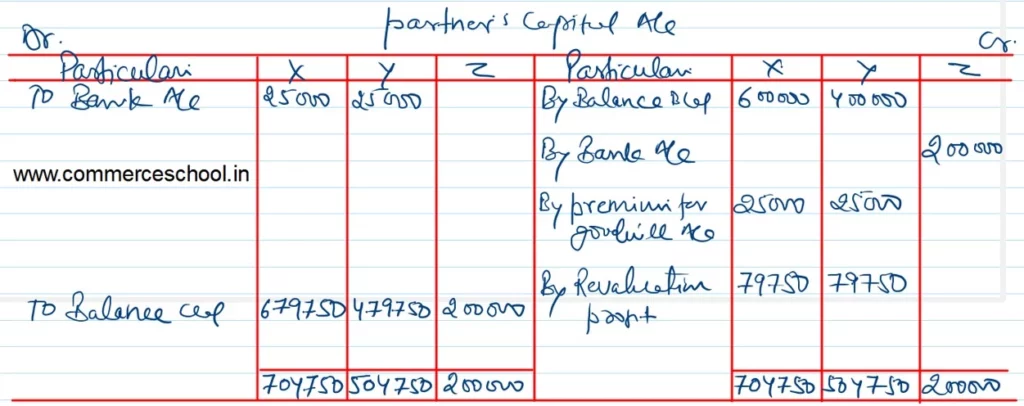 partner's Capital A/c
Dr. Cr.
Particulars X Y Z Particulars X Y Z
To Bank A/c 25000 25000 By Balance b/d 600000 400000
By Bank A/c 200000
www.commerceschool.in
By premium for 25000 25000
goodwill A/c
By Revaluation 79750 79750
profit
To Balance c/d 679750 479750 200000
704750 504750 200000 704750 504750 200000